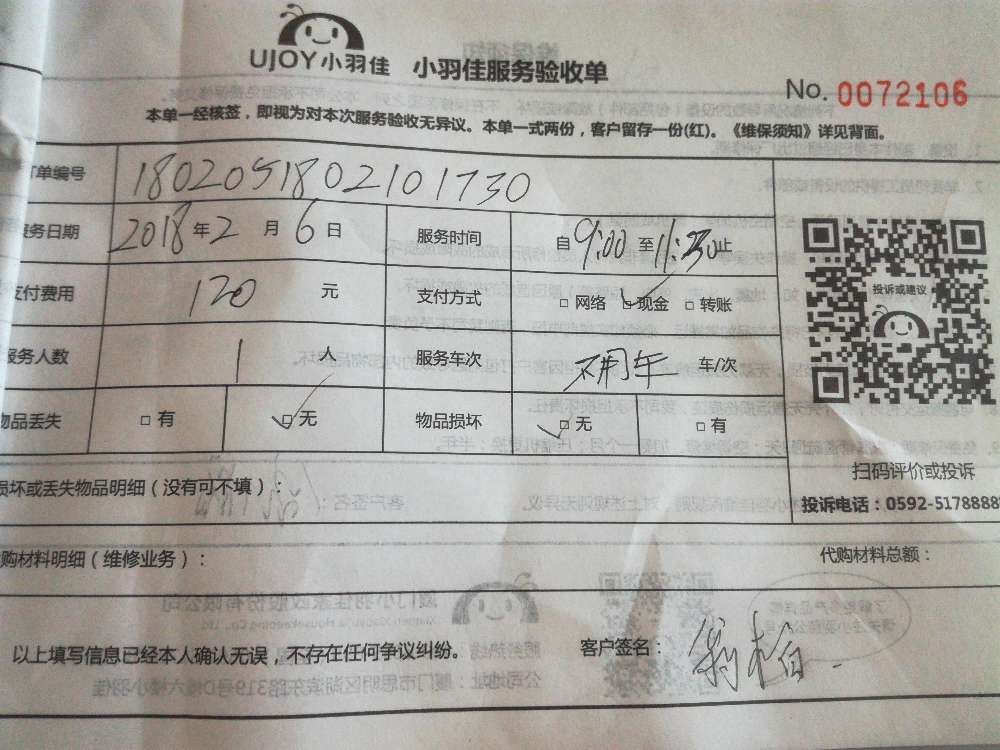 UJOY小羽佳 小羽佳服务验收单
No. 0072106
本单一经核签，即视为对本次服务验收无异议。本单一式两份，客户留存一份(红)。《维保须知》详见背面。
订单编号 1802051802101730
服务日期 2018年2月6日 服务时间 自9:00至11:30止
支付费用 120元 支付方式 □网络 □现金 □转账
投诉或建议
服务人数 1人 服务车次 不用车 车/次
物品丢失 □有 □无 物品损坏 □无 □有
扫码评价或投诉
损坏或丢失物品明细（没有可不填）：
投诉电话：0592-5178888
购材料明细（维修业务）： 代购材料总额：
以上填写信息已经本人确认无误，不存在任何争议纠纷。 客户签名：